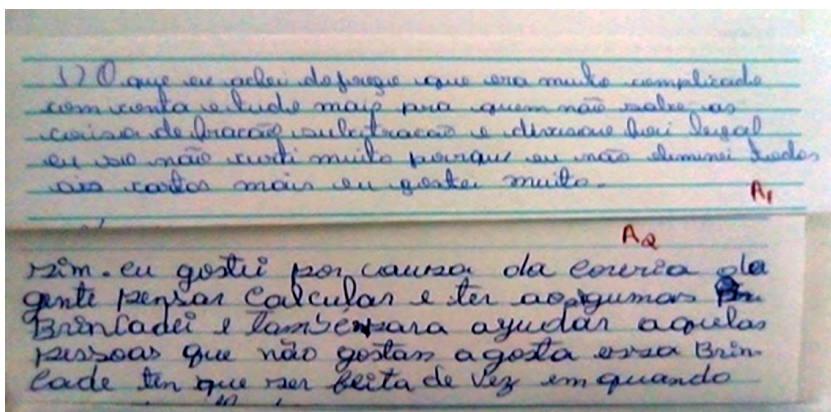 1) O que eu achei do jogo que era muito complicado
com conta e tudo mais pra quem não sabe as
coisa de fração subtração e divisão foi legal
eu so não curti muito porque eu não eliminei todos
as cartas mais eu gostei muito.
A1
A2
sim. eu gostei por causa da correria da
gente pensar calcular e ter algumas
Brincadei e também para ajudar aquelas
pessoas que não gostam a gosta essa Brin
cade tem que ser feita de vez em quando